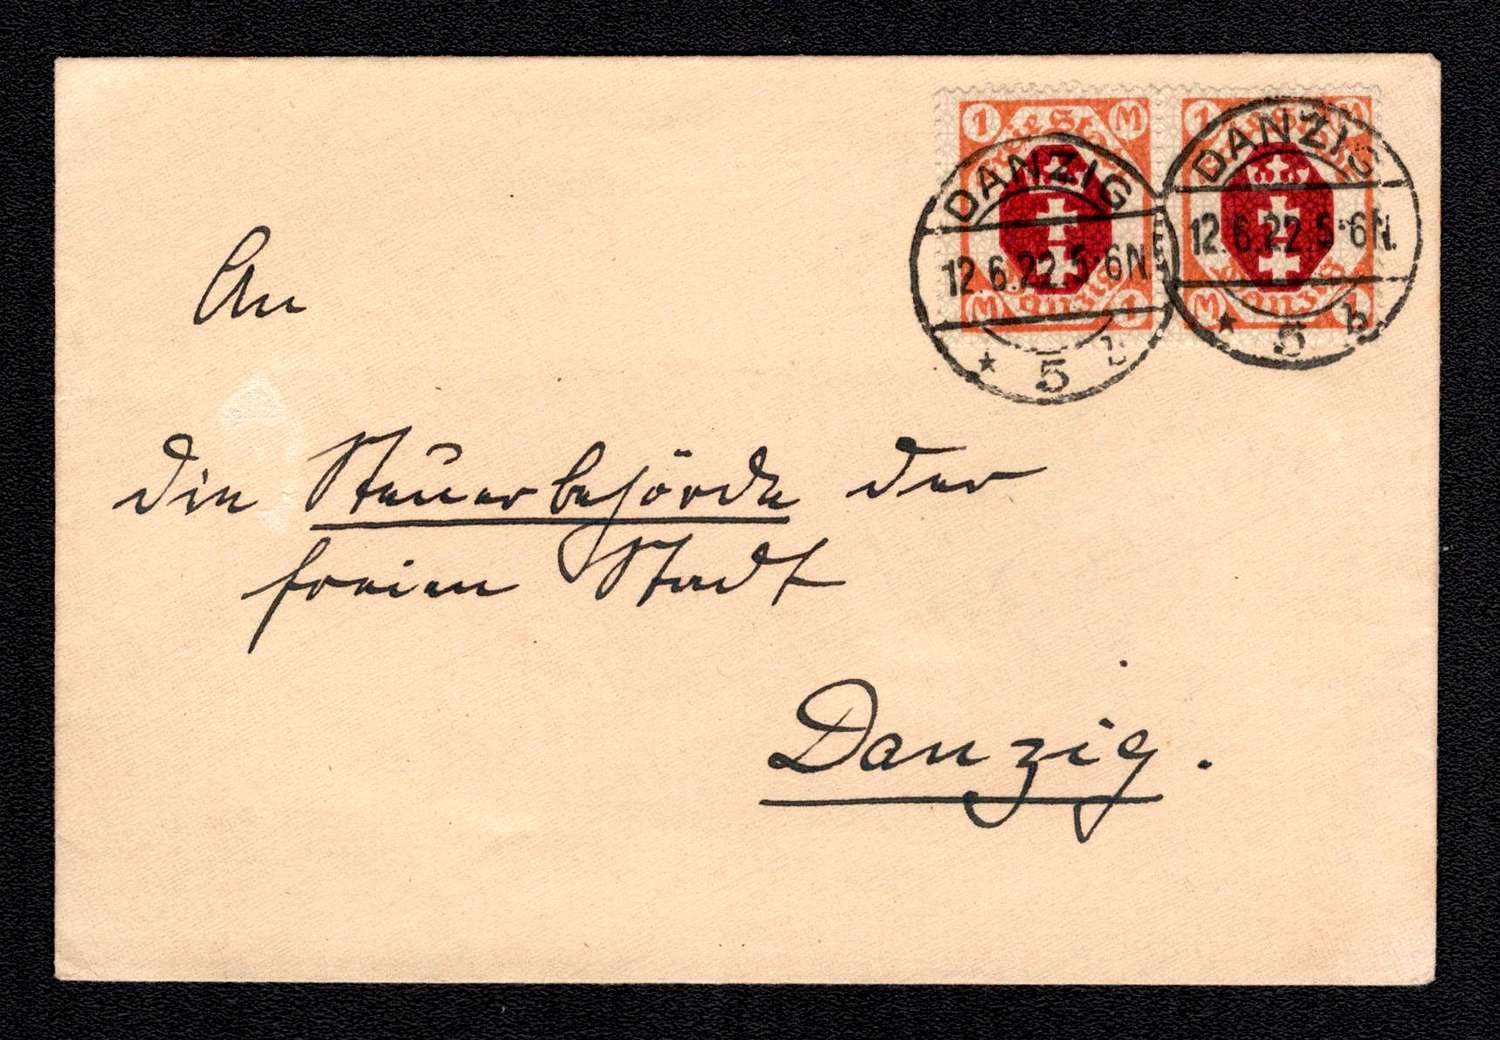 1 M
1 M
Freie Stadt
Danzig
M 1
M 1
DANZIG
12.6.22.5-6N.
* 5 b
DANZIG
12.6.22.5-6N.
* 5 b
An
die Steuerbehörde der
freien Stadt
Danzig.